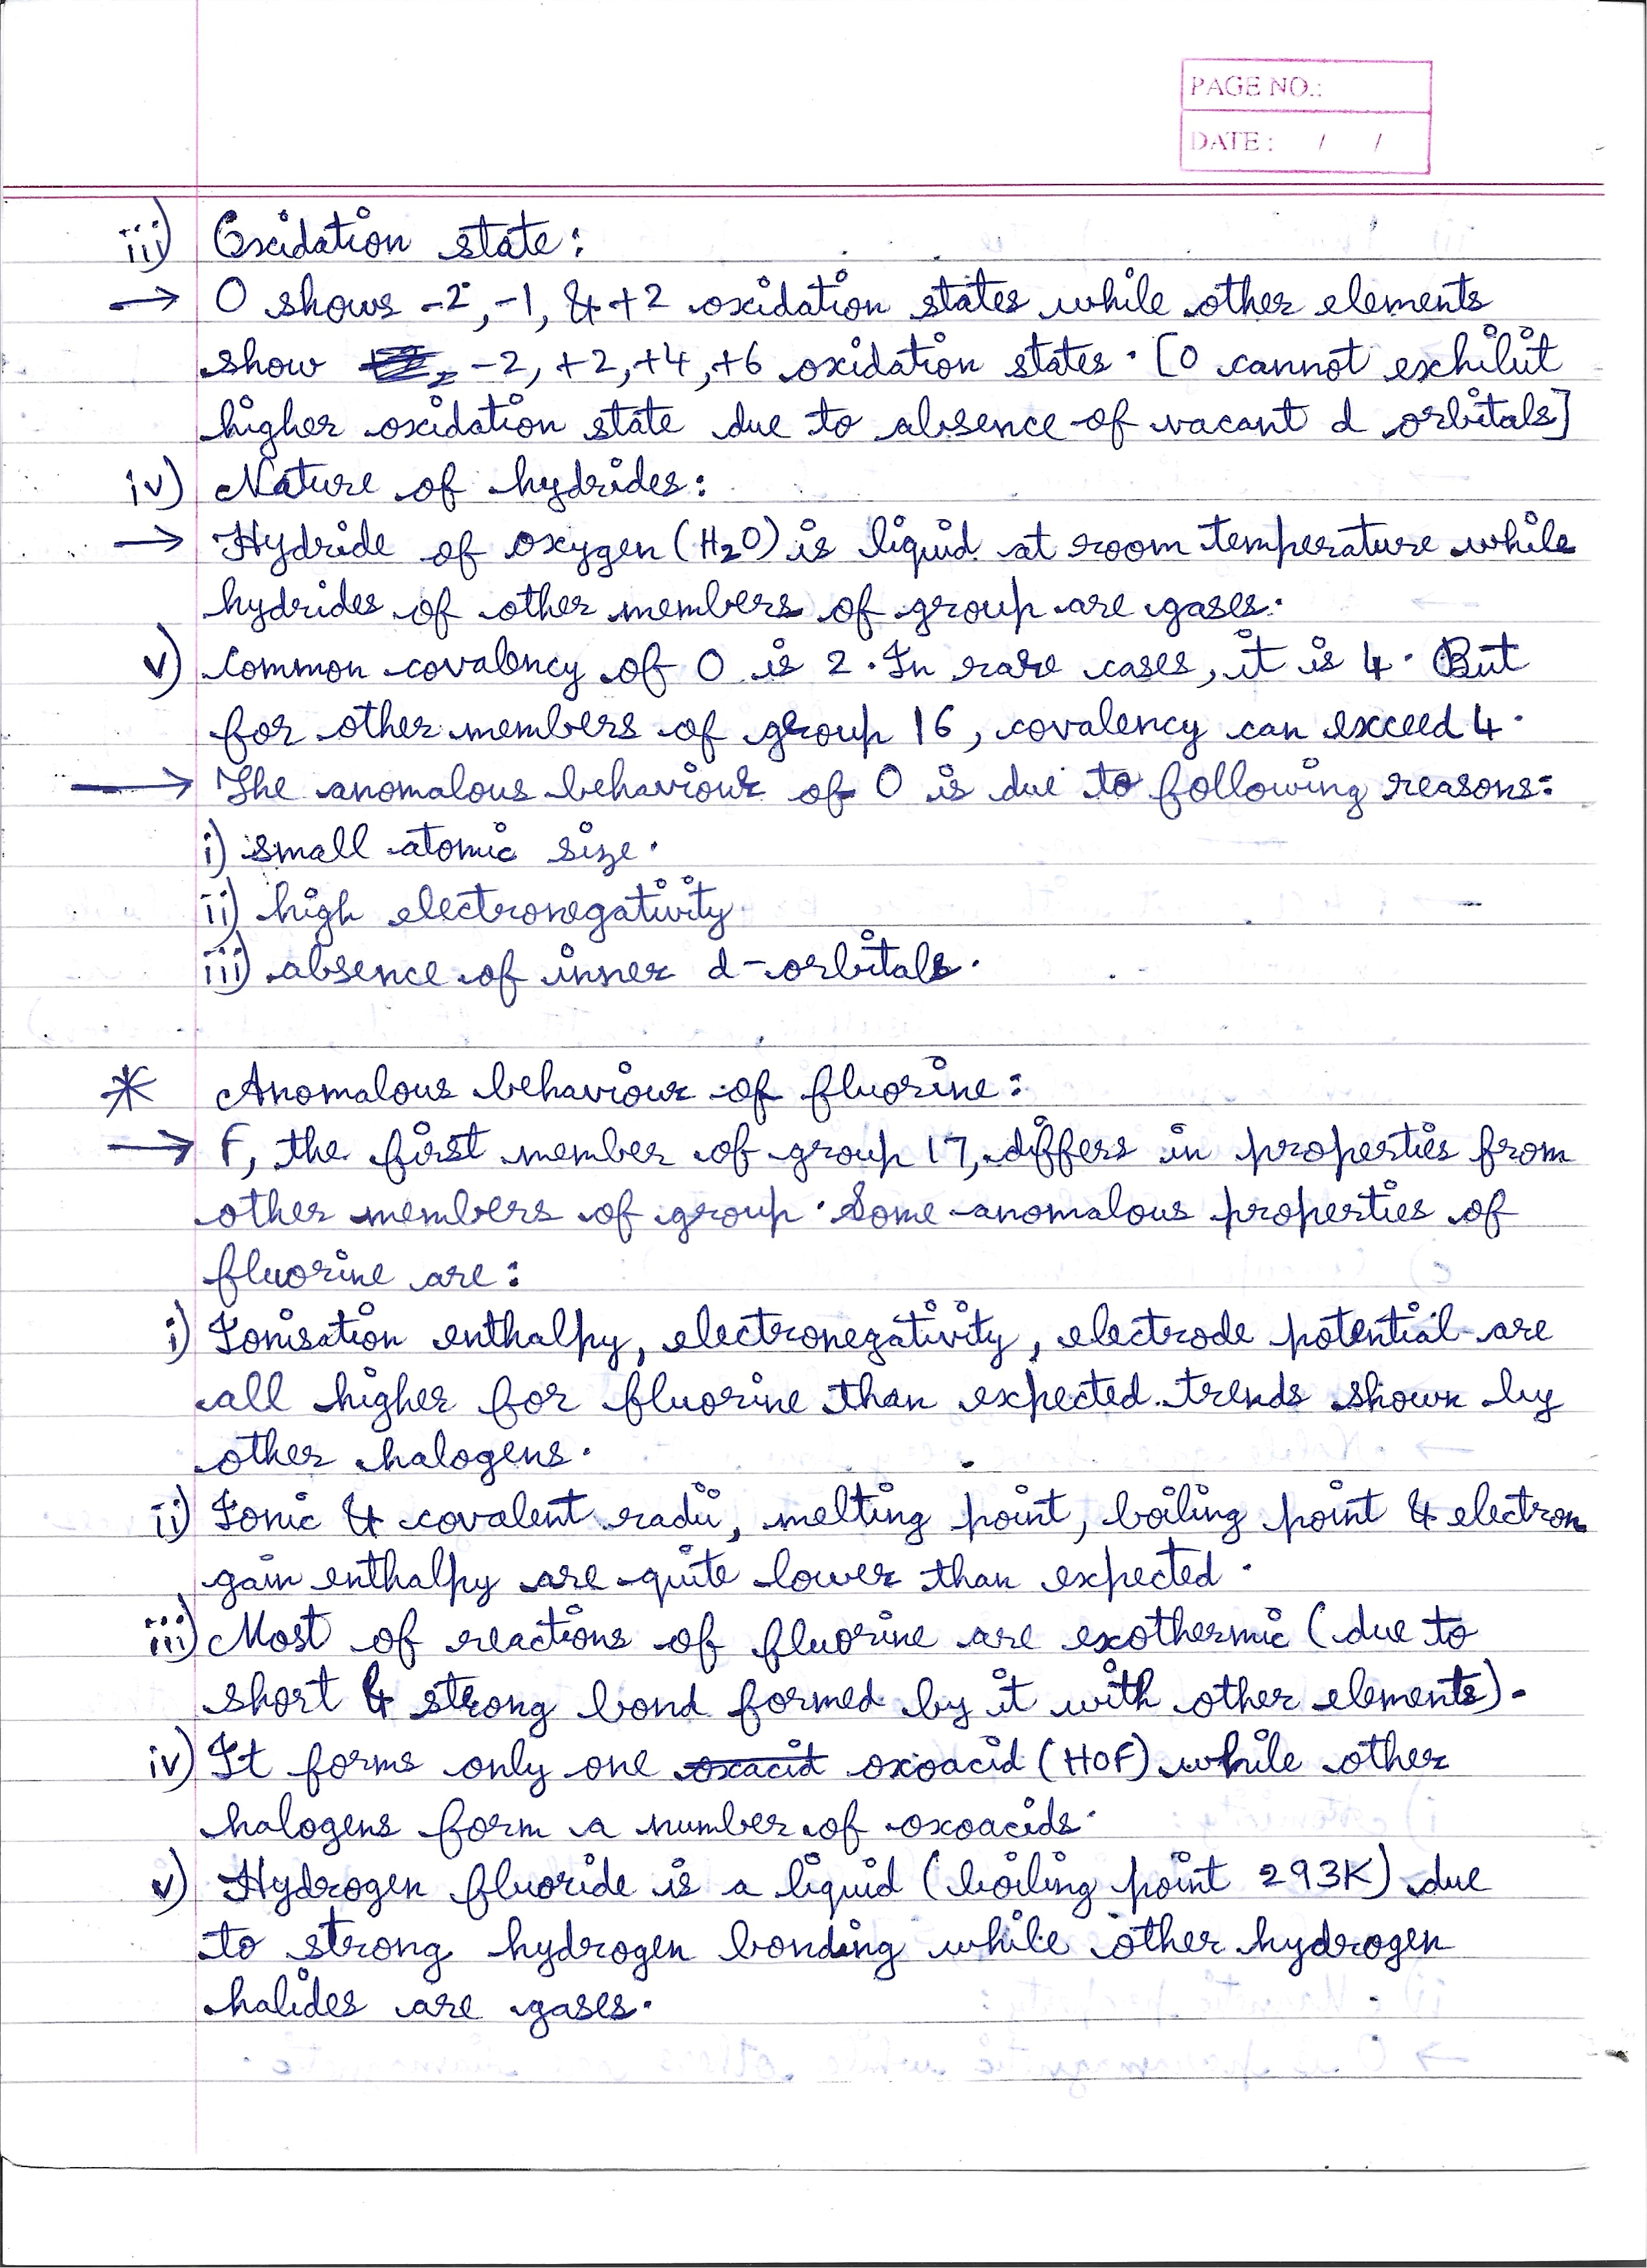 PAGE NO.:
DATE : / /
iii) Oxidation state:
→ O shows -2, -1, & +2 oxidation states while other elements
show -2, +2, +4, +6 oxidation states. [O cannot exhibit
higher oxidation state due to absence of vacant d orbitals]
iv) Nature of hydrides:
→ Hydride of oxygen (H₂O) is liquid at room temperature while
hydrides of other members of group are gases.
v) Common covalency of O is 2. In rare cases, it is 4. But
for other members of group 16, covalency can exceed 4.
→ The anomalous behaviour of O is due to following reasons:
i) small atomic size.
ii) high electronegativity
iii) absence of inner d-orbitals.
* Anomalous behaviour of fluorine:
→ F, the first member of group 17, differs in properties from
other members of group. Some anomalous properties of
fluorine are:
i) Ionisation enthalpy, electronegativity, electrode potential are
all higher for fluorine than expected trends shown by
other halogens.
ii) Ionic & covalent radii, melting point, boiling point & electron
gain enthalpy are quite lower than expected.
iii) Most of reactions of fluorine are exothermic (due to
short & strong bond formed by it with other elements).
iv) It forms only one oxacid oxoacid (HOF) while other
halogens form a number of oxoacids.
v) Hydrogen fluoride is a liquid (boiling point 293K) due
to strong hydrogen bonding while other hydrogen
halides are gases.